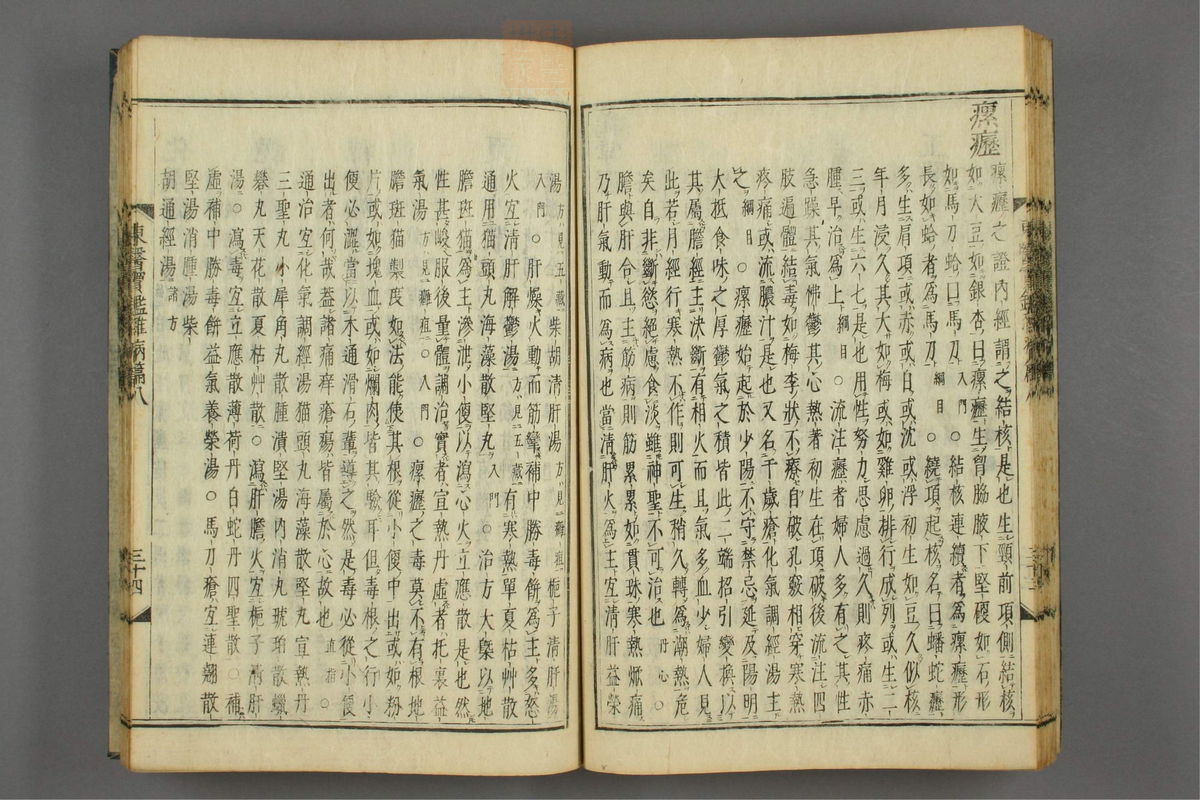 瘰癧
瘰癧之證内經謂之結核是也生頸前項側結核
如大豆如銀杏曰瘰癧生胷脇腋下堅硬如石形
如馬刀蛤曰馬刀入門○結核連續者爲瘰癧形
長如蛤者爲馬刀綱目○繞項起核名曰蟠蛇癧
多生肩項或赤或白或沈或浮初生如豆久似核
年月浸久其大如梅或如雞卵排行成列或生二
三或生六七是也用性努力思慮過久則疼痛赤
腫早治爲上綱目○流注癧者婦人多有之其性
急躁其氣怫鬱其心熱著初生在項破後流注四
肢遍體結毒如梅李狀不療自破孔竅相穿寒熱
疼痛或流膿汁是也又名千歲瘡化氣調經湯主
之綱目○瘰癧始起於少陽不守禁忌延及陽明
大抵食味之厚鬱氣之積皆此二端招引變換以
其屬膽經主決斷有相火而且氣多血少婦人見
此若月經行寒熱不作則可生稍久轉爲潮熱危
矣自非斷慾絶慮食淡雖神聖不可治也丹心○
膽與肝合且主筋病則筋累累如貫珠寒熱焮痛
乃肝氣動而爲病也當清肝火爲主宜清肝益榮
湯方見五藏柴胡清肝湯方見癰疽梔子清肝湯
入門○肝燥火動而筋攣補中勝毒餅爲主多怒
火宜清肝解鬱湯方見五藏有寒熱單夏枯艸散
通用猫頭丸海藻散堅丸入門○治方大槩以地
膽班猫爲主滲泄小便以瀉心火立應散是也然
性甚峻服後量體調治實者宜熱丹虛者托裏益
氣湯方見癰疽○入門○瘰癧之毒莫不有根地
膽班猫製度如法能使其根從小便中出或如粉
片或如塊血或如爛肉皆其驗耳但毒根之行小
便必澀當以木通滑石輩導之然是毒必從小便
出者何哉蓋諸痛痒瘡瘍皆屬於心故也直指○
通治宜化氣調經湯猫頭丸海藻散堅丸宣熱丹
三聖丸小犀角丸散腫潰堅湯内消丸琥珀散蠟
礬丸天花散夏枯艸散○瀉肝膽火宜梔子清肝
湯○瀉毒宜立應散薄荷丹白蛇丹四聖散○補
虛補中勝毒餅益氣養榮湯○馬刀瘡宜連翹散
堅湯消腫湯柴
胡通經湯諸方
東醫寶鑑雜病篇八
三十四